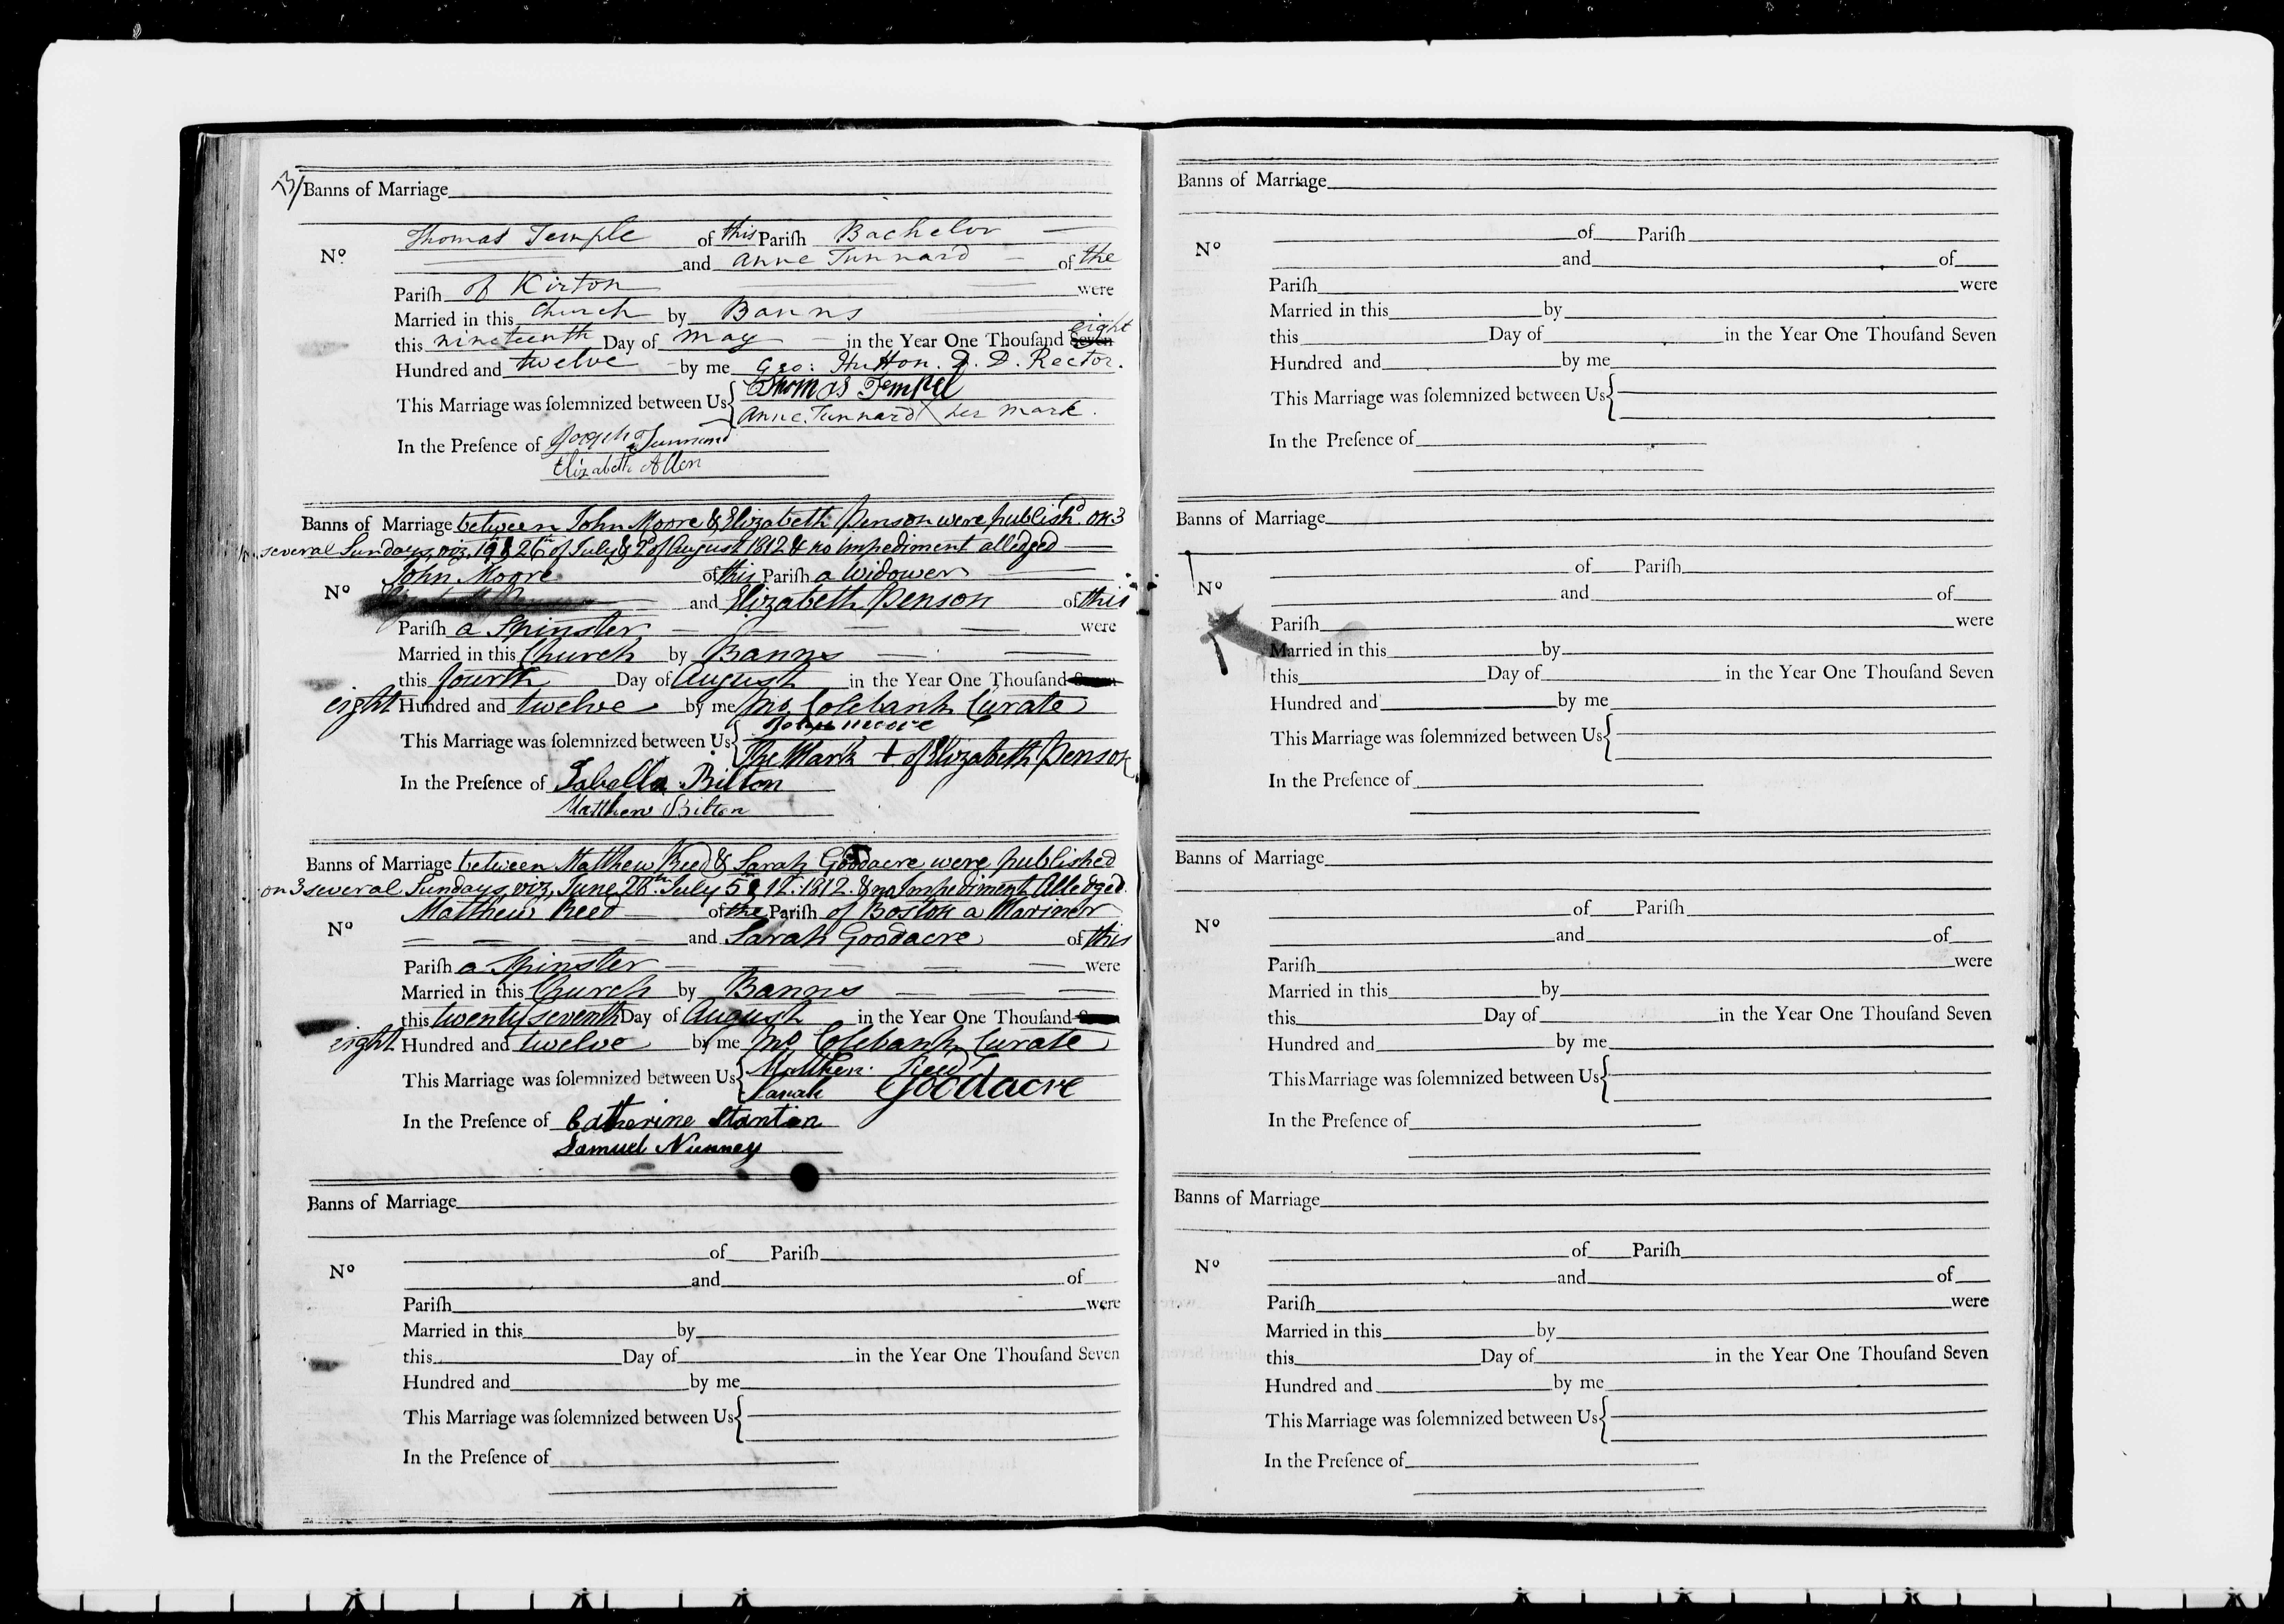 Banns of Marriage
Thomas Temple of this Pariſh Bachelor
No and Anne Tunnard of the
Pariſh of Kirton were
Married in this Church by Banns
this nineteenth Day of May in the Year One Thouſand Seven eight
Hundred and twelve by me Geo: Hutton. D. D. Rector.
This Marriage was ſolemnized between Us Thomas Tempel
Anne Tunnard X her mark.
In the Preſence of Joseph Tunnard
Elizabeth Allen
Banns of Marriage between John Moore & Elizabeth Penson were publish'd on 3
several Sundays, viz. 19 & 26th of July & 2d of August 1812 & no Impediment alledged
John Moore of this Pariſh a Widower
No and Elizabeth Penson of this
Pariſh a Spinster were
Married in this Church by Banns
this fourth Day of August in the Year One Thouſand Seven
eight Hundred and twelve by me Colebank Curate
This Marriage was ſolemnized between Us John moore
The Mark + of Elizabeth Penson
In the Preſence of Isabella Bilton
Matthew Bilton
Banns of Marriage between Matthew Reed & Sarah Goodacre were published
on 3 several Sundays, viz, June 28th July 5 & 12. 1812. & no Impediment Alledged.
Matthew Reed of the Pariſh of Boston a Mariner
No and Sarah Goodacre of this
Pariſh a Spinster were
Married in this Church by Banns
this twenty seventh Day of August in the Year One Thouſand Seven
eight Hundred and twelve by me Colebank Curate
This Marriage was ſolemnized between Us Matthew Reed
Sarah Goodacre
In the Preſence of Catherine Stanton
Samuel Nunney
Banns of Marriage
of Pariſh
No and of
Pariſh were
Married in this by
this Day of in the Year One Thouſand Seven
Hundred and by me
This Marriage was ſolemnized between Us
In the Preſence of
Banns of Marriage
of Pariſh
No and of
Pariſh were
Married in this by
this Day of in the Year One Thouſand Seven
Hundred and by me
This Marriage was ſolemnized between Us
In the Preſence of
Banns of Marriage
of Pariſh
No and of
Pariſh were
Married in this by
this Day of in the Year One Thouſand Seven
Hundred and by me
This Marriage was ſolemnized between Us
In the Preſence of
Banns of Marriage
of Pariſh
No and of
Pariſh were
Married in this by
this Day of in the Year One Thouſand Seven
Hundred and by me
This Marriage was ſolemnized between Us
In the Preſence of
Banns of Marriage
of Pariſh
No and of
Pariſh were
Married in this by
this Day of in the Year One Thouſand Seven
Hundred and by me
This Marriage was ſolemnized between Us
In the Preſence of